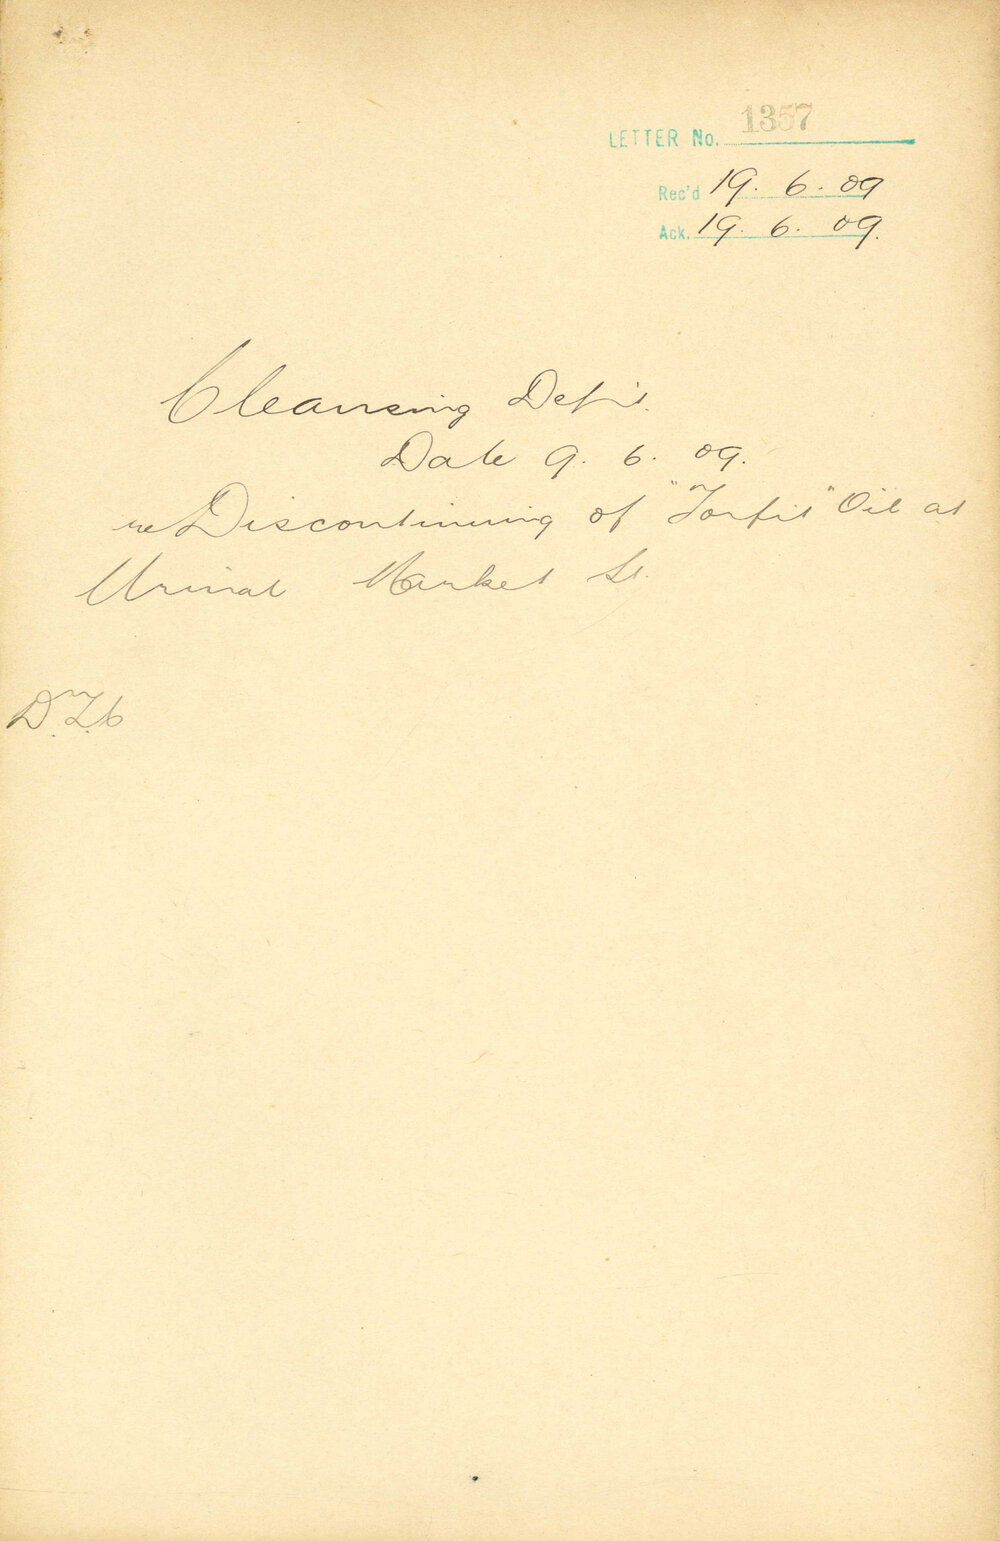 LETTER No. 1357
Rec'd 19. 6. 09
Ack. 19. 6. 09.
Cleansing Dept.
Date 9. 6. 09.
re Discontinuing of "Torfit" Oil at
Urinal Market St.